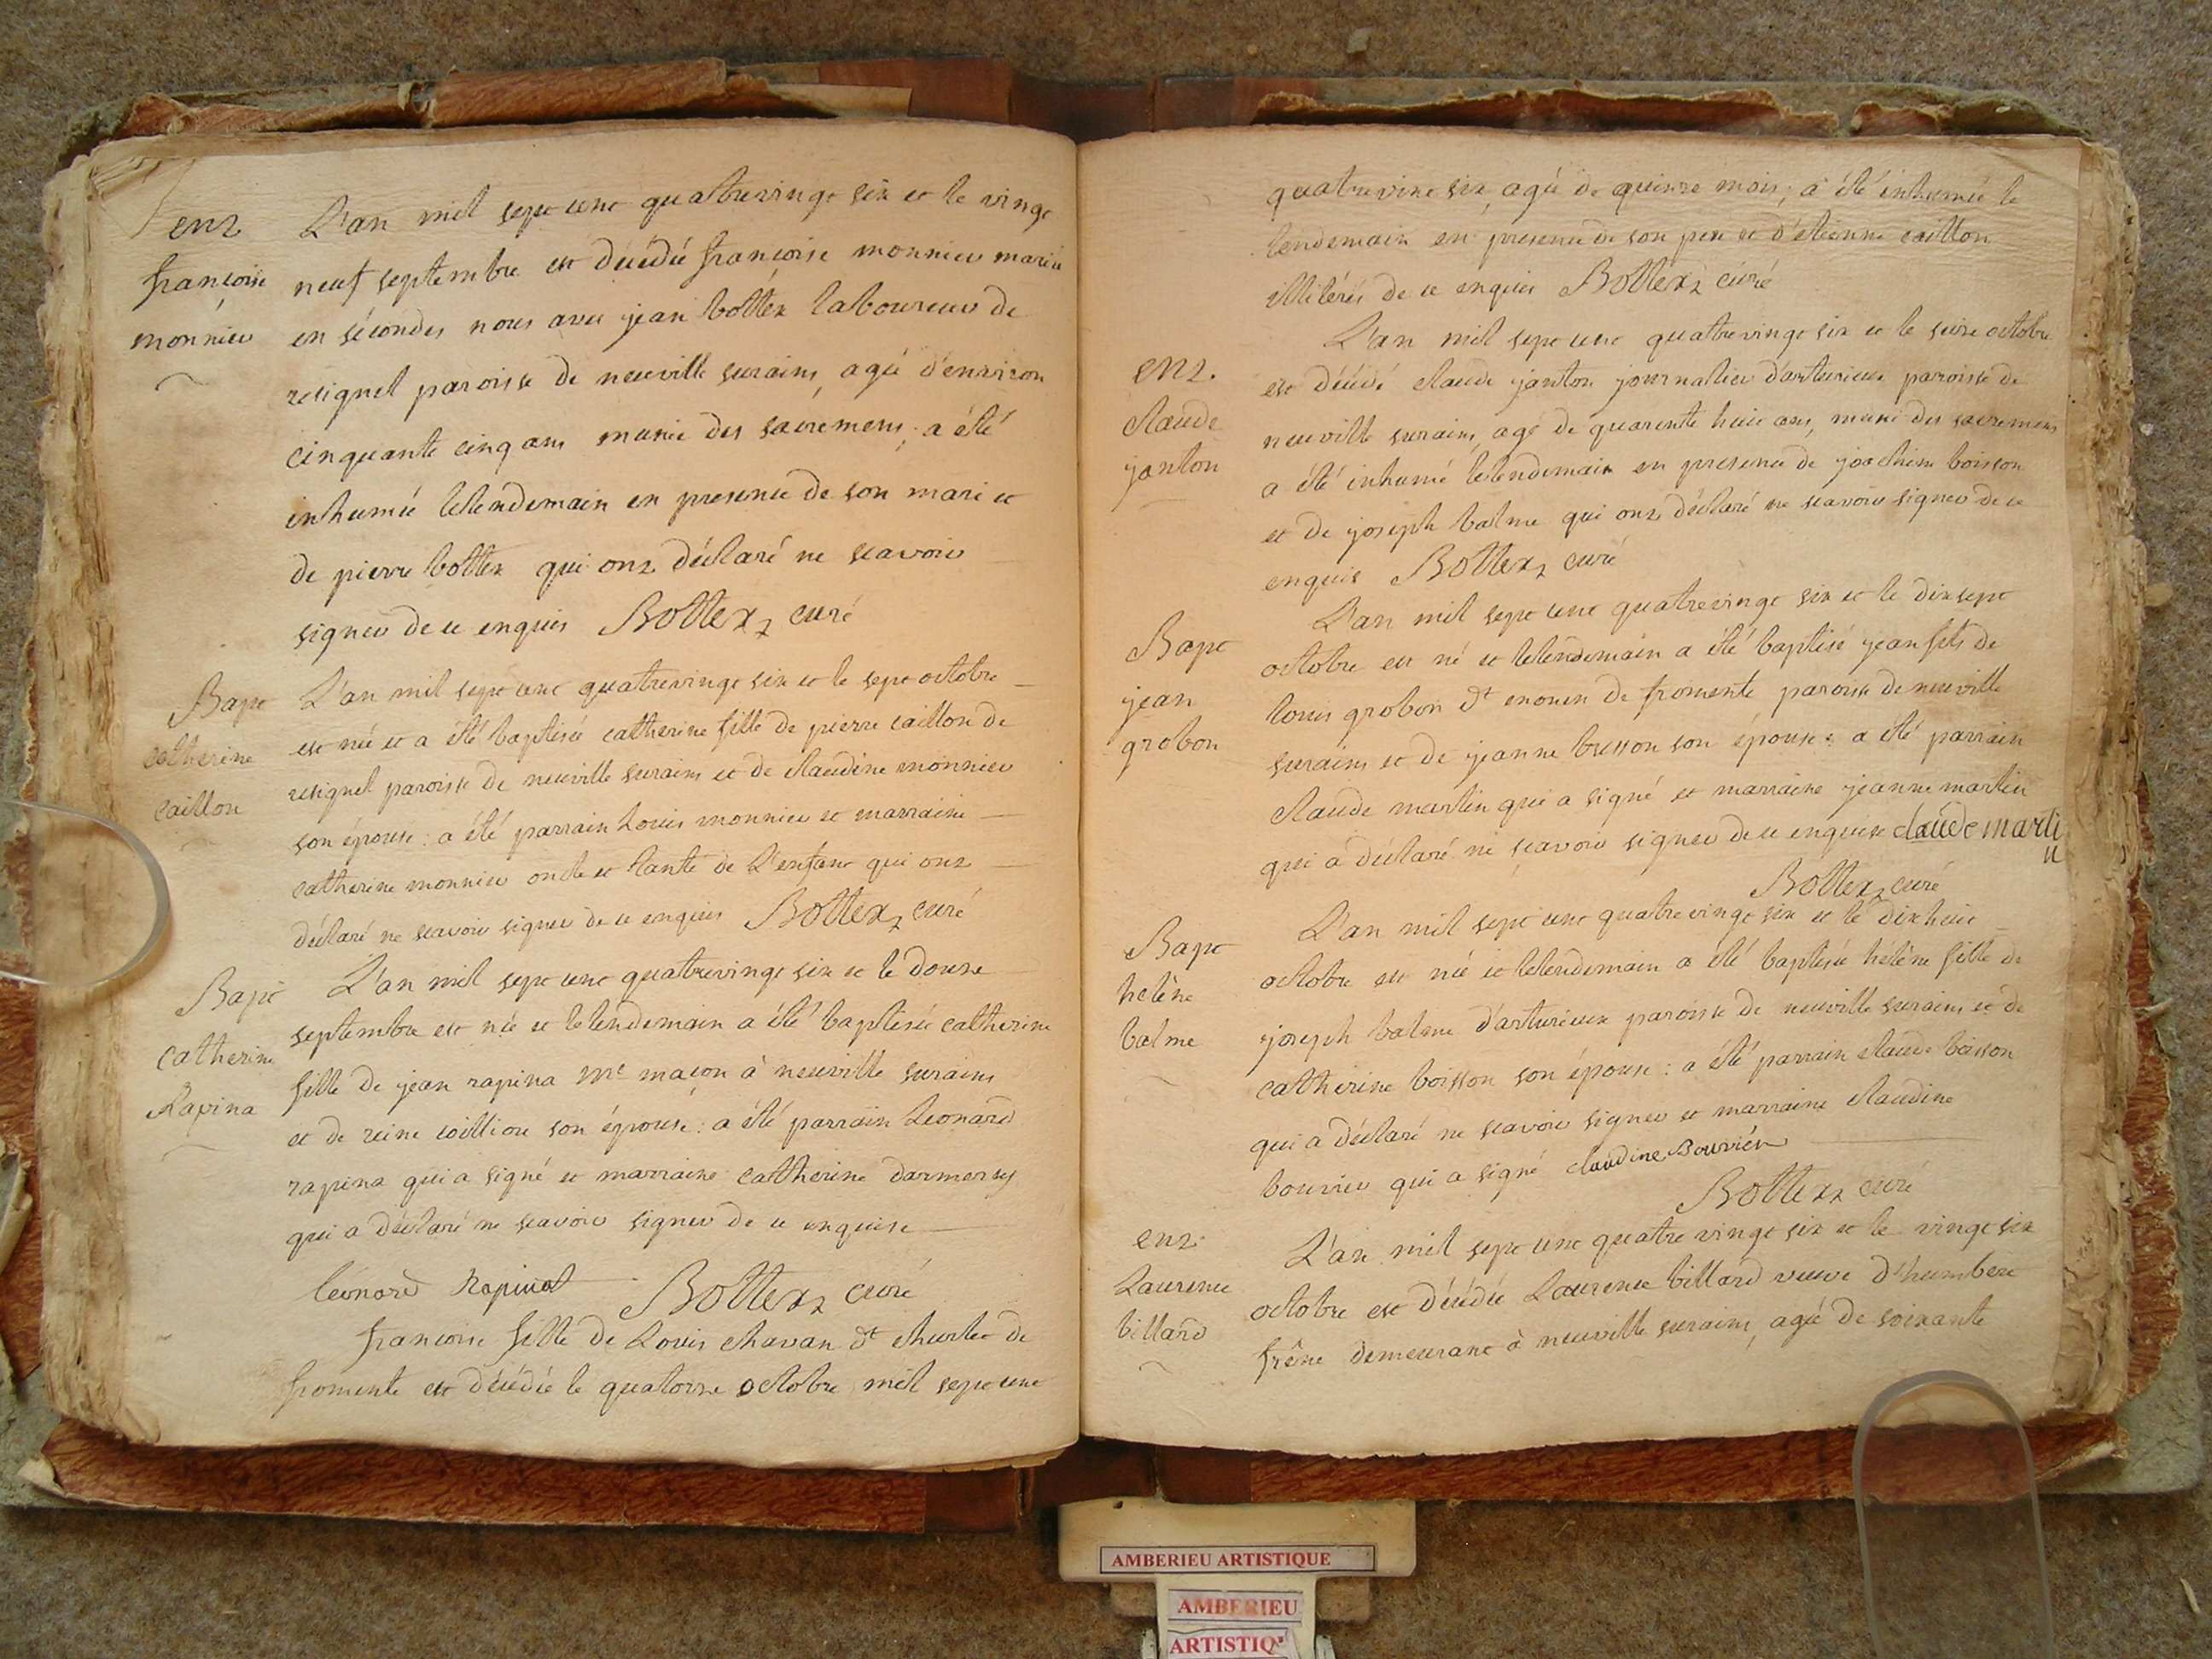 ent
françoise
monnier
L'an mil sept cent quatrevingt six et le vingt
neuf septembre est décédée françoise monnier mariée
en sécondes noces avec jean bottex laboureur de
resignel paroisse de neuville surains, agée d'environ
cinquante cinq ans munie des sacremens; a été
inhumée lelendemain en presence de son mari et
de pierre bottex qui ont déclaré ne scavoir
signer de ce enquis Bottex, curé
Bapt
catherine
caillon
L'an mil sept cent quatrevingt six et le sept octobre
est née et a été baptisée catherine fille de pierre caillon de
resignel paroisse de neuville surains et de claudine monnier
son épouse: a été parrain Louis monnier et marraine
catherine monnier oncle et tante de L'enfant qui ont
déclaré ne scavoir signer de ce enquis Bottex, curé
Bapt
Catherine
Rapina
L'an mil sept cent quatrevingt six et le douze
septembre est née et lelendemain a été baptisée catherine
fille de jean rapina me maçon à neuville surains
et de reine son épouse: a été parrain Leonard
rapina qui a signé et marraine catherine
qui a déclaré ne scavoir signer de ce enquise
leonard Rapinat Bottex, curé
françoise fille de Louis chavan dt de
fromente est décédée le quatorze octobre mil sept cent
quatrevint six, agée de quinze mois; a été inhumée le
lendemain en presence de son pere et d'étienne caillon
illitérés de ce enquis Bottex, curé
ent.
claude
janton
L'an mil sept cent quatrevingt six et le seize octobre
est décédé claude janton journalier d'arturieux paroisse de
neuville surains, agé de quarente huit ans, muni des sacremens
a été inhumé lelendemain en presence de joachim boisson
et de joseph balme qui ont déclaré ne scavoir signer de ce
enquis Bottex, curé
Bapt
jean
grobon
L'an mil sept cent quatrevingt six et le dix sept
octobre est né et lelendemain a été baptisé jean fils de
louis grobon dt de fromente paroisse de neuville
surains et de jeanne son épouse: a été parrain
claude martin qui a signé et marraine jeanne martin
qui a déclaré ne scavoir signer de ce enquise claude marti
n
Bottex, curé
Bapt
helène
balme
L'an mil sept cent quatrevingt six et le dix huit
octobre est née et lelendemain a été baptisée helène fille de
joseph balme d'arturieux paroisse de neuville surains et de
catherine boisson son épouse: a été parrain claude boisson
qui a déclaré ne scavoir signer et marraine claudine
bouvier qui a signé claudine Bouvier
Bottex, curé
ent.
Laurence
billard
L'an mil sept cent quatre vingt six et le vingt six
octobre est décédée Laurence billard veuve d'humbert
frêne demeurant à neuville surains, agée de soixante
AMBERIEU ARTISTIQUE
AMBERIEU
ARTISTIQ